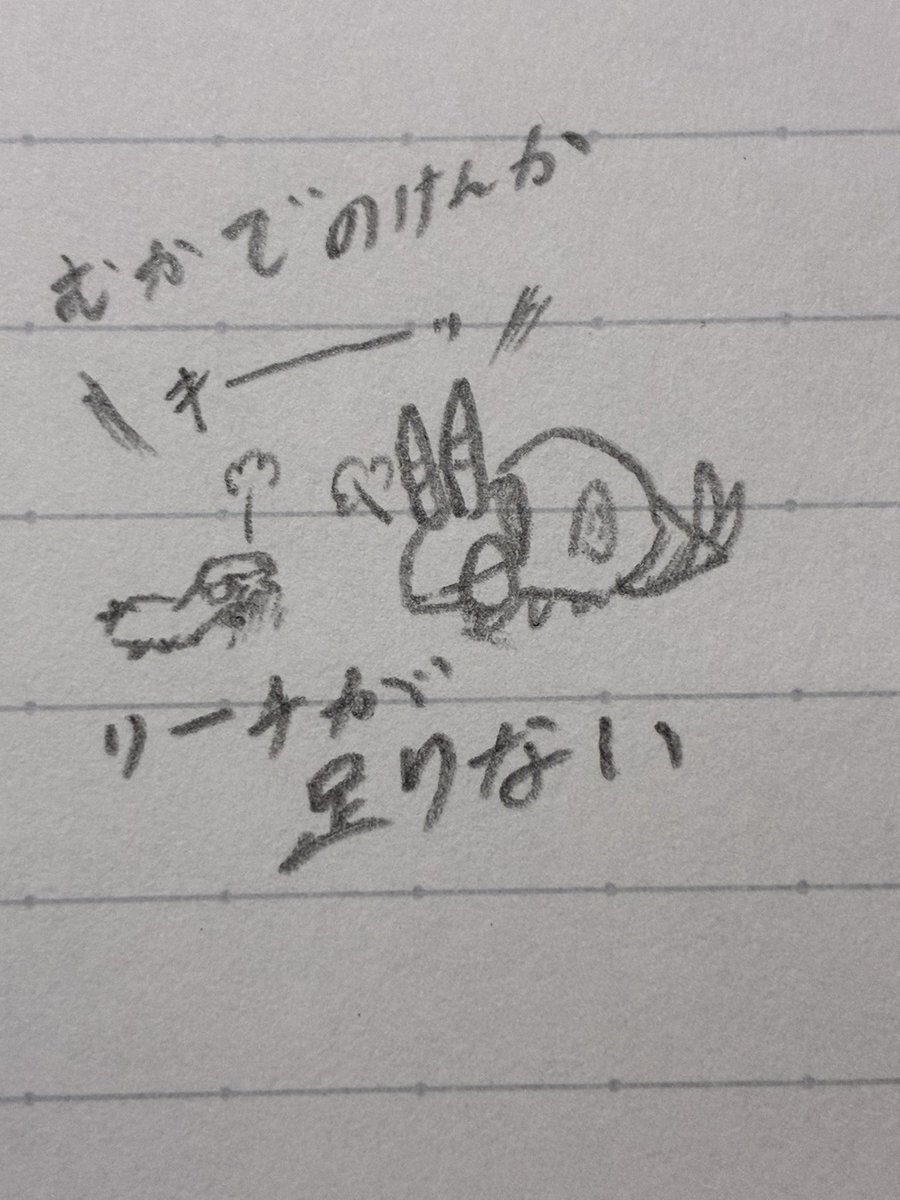 むかでのけんか
キーッ
リーチが
足りない